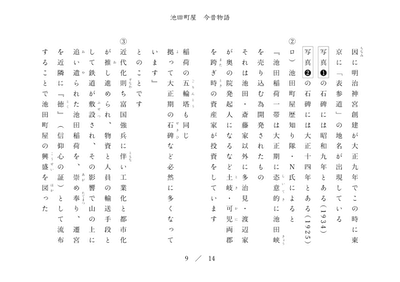 池田町屋　今昔物語
因に明治神宮創建が大正九年でこの時に東
京に「表参道」の地名が出現している
写真❶の石碑には昭和九年とある(1934)
写真❷の石碑には大正十四年とある(1925)
②
ロ）池田町屋歴史語り隊・N氏によると
『池田稲荷一帯は大正期に恣意的に池田峡
を売り込む為開発されたもの
それは池田・斎藤家以外に多治見・渡辺家
が奥の院発起人になるなど土岐・可児両郡
を跨ぎ時の資産家が投資をしています
稲荷の五輪塔も同じ
拠って大正期の石碑など必然に多くなって
います』
とのことです
③近代化則ち富国強兵に伴い工業化と都市化
が推し進められ、物資と人員の輸送手段と
して鉄道が敷設され、その影響で山の上に
追い遣られた池田稲荷を、崇め奉り、遷宮
を近隣に「徳」（信仰心の証）として流布
することで池田町屋の興盛を図った
9 ／ 14